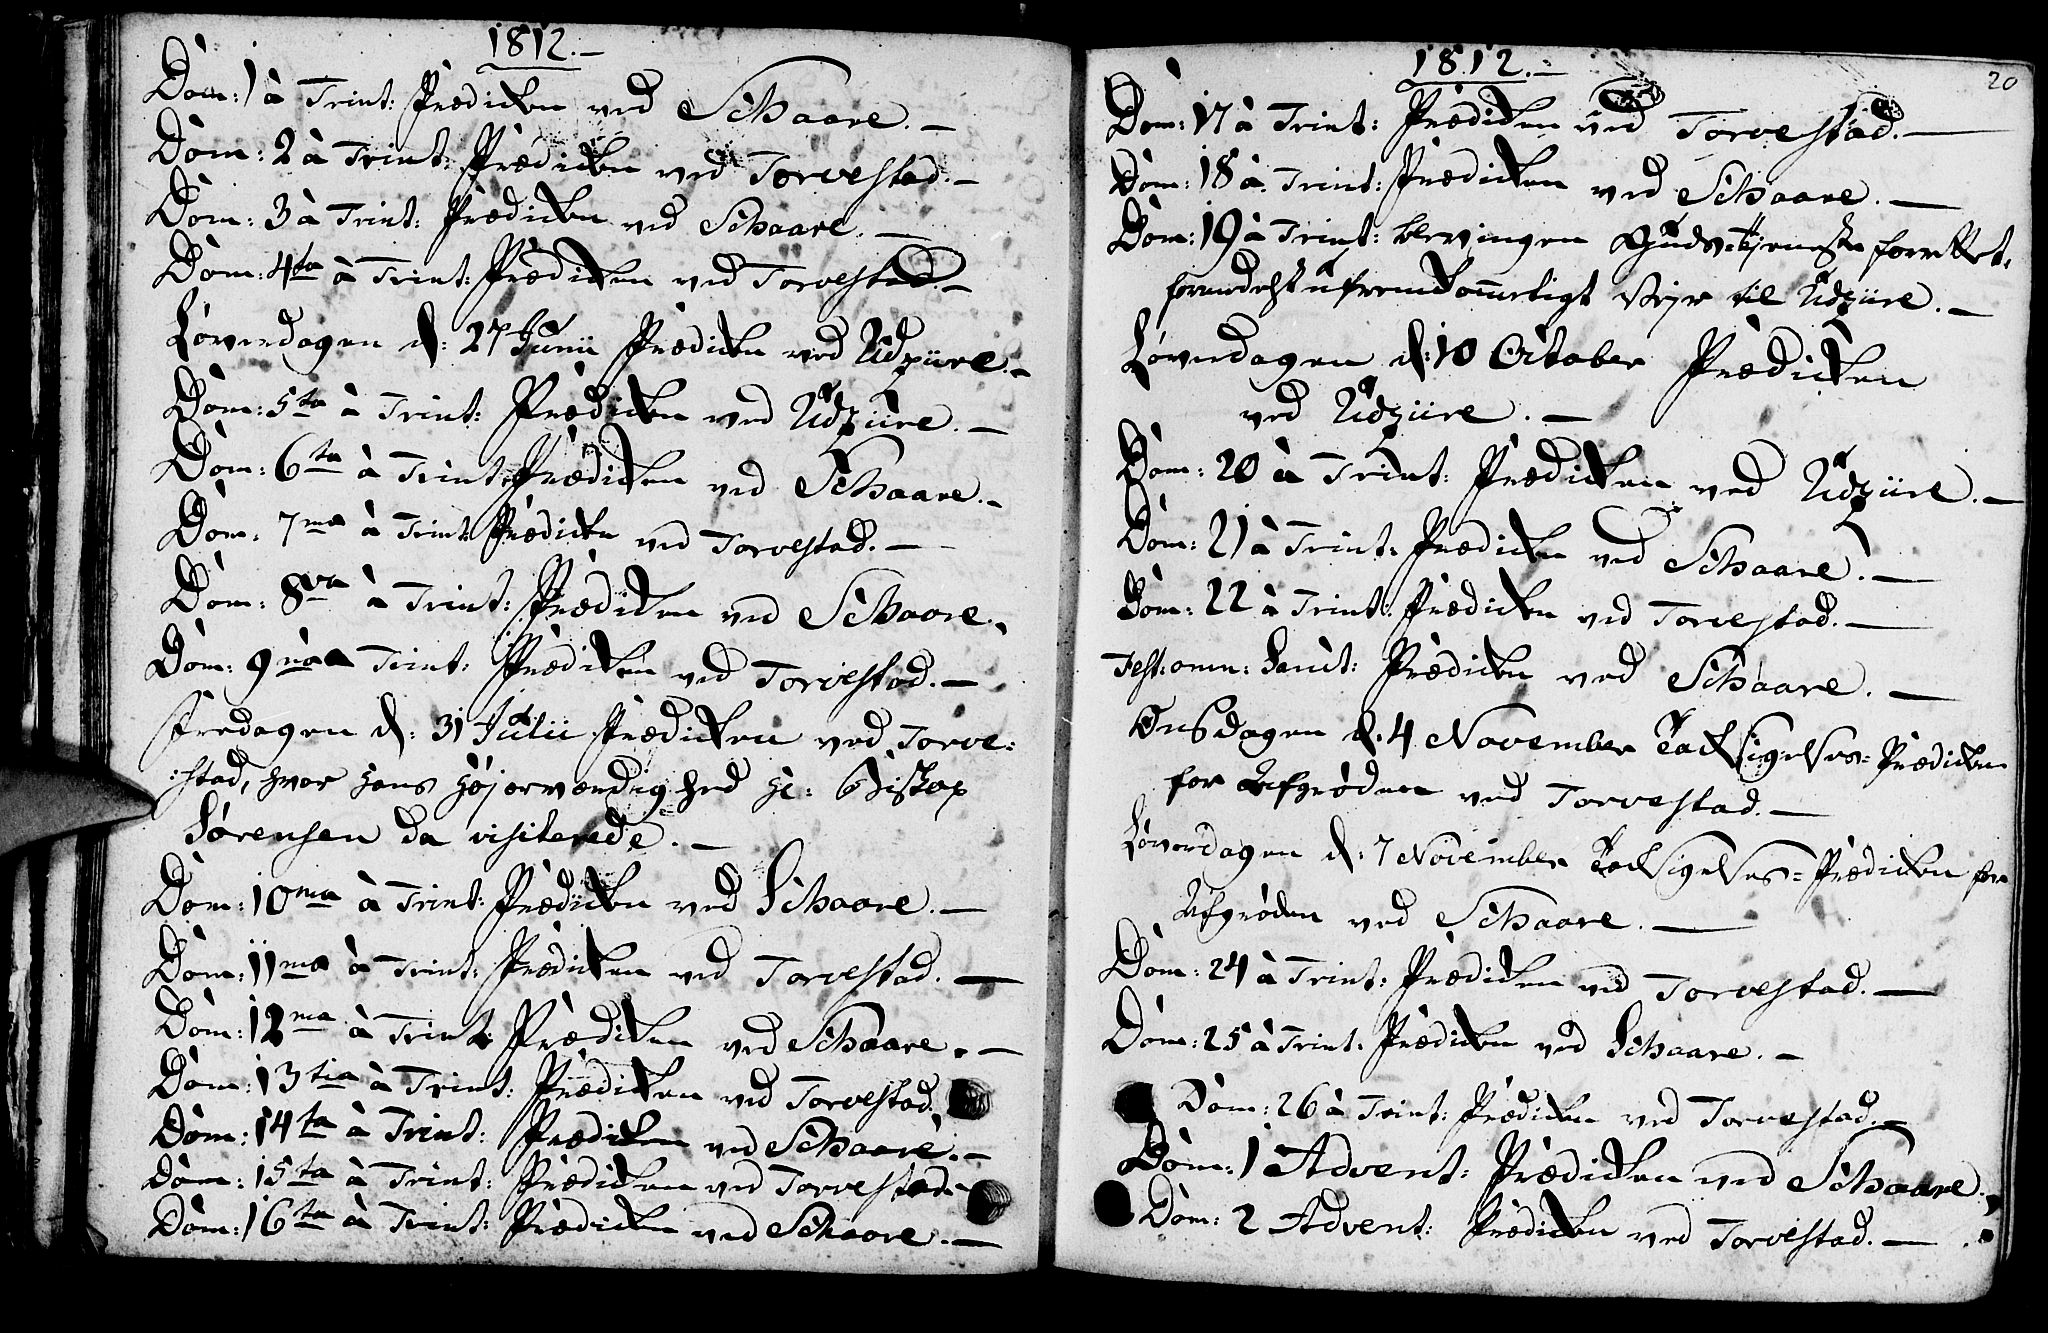 1812.-
Dom: 1 à Trint: Prædicken ved Schaare.-
Dom: 2 à Trint: Prædicken ved Torvestad.-
Dom: 3 à Trint: Prædicken ved Schaare.-
Dom: 4ta à Trint: Prædicken ved Torvestad.-
Løverdagen d: 27 Junii Prædicken ved Udziire.-
Dom: 5ta à Trint: Prædicken ved Udziire.-
Dom: 6ta à Trint: Prædicken ved Schaare.-
Dom: 7ma à Trint: Prædicken ved Torvestad.-
Dom: 8va à Trint: Prædicken ved Schaare.-
Dom: 9na à Trint: Prædicken ved Torvestad.-
Fredagen d: 31 Julii Prædicken ved Torve:
:stad, hvor Hans Højærværdighed Hr: Biskop
Sørensen da visiterede.-
Dom: 10ma à Trint: Prædicken ved Schaare.-
Dom: 11ma à Trint: Prædicken ved Torvestad.-
Dom: 12ma à Trint: Prædicken ved Schaare.-
Dom: 13tia à Trint: Prædicken ved Torvestad.
Dom: 14ta à Trint: Prædicken ved Schaare.-
Dom: 15ta à Trint: Prædicken ved Torvestad.-
Dom: 16ta à Trint: Prædicken ved Schaare.-
20
1812.-
Dom: 17 à Trint: Prædicken ved Torvestad.-
Dom: 18 à Trint: Prædicken ved Schaare.-
Dom: 19 à Trint: Gudstjeneste forrettet,
formedelst ufremkommeligt Vejr til Udziire.-
Løverdagen d: 10 October Prædicken
ved Udziire.-
Dom: 20 à Trint: Prædicken ved Udziire.-
Dom: 21 à Trint: Prædicken ved Schaare.-
Dom: 22 à Trint: Prædicken ved Torvestad.-
Fest: omn: Sanct: Prædicken ved Schaare.-
Onsdagen d. 4 November Tacksigelses-Prædicken
for Afgrøden ved Torvestad.-
Løverdagen d: 7 November Tacksigelses-Prædicken for
Afgrøden ved Schaare.-
Dom: 24 à Trint: Prædicken ved Torvestad.-
Dom: 25 à Trint: Prædicken ved Schaare.-
Dom: 26 à Trint: Prædicken ved Torvestad.-
Dom: 1 Advent: Prædicken ved Schaare.-
Dom: 2 Advent: Prædicken ved Torvestad.-